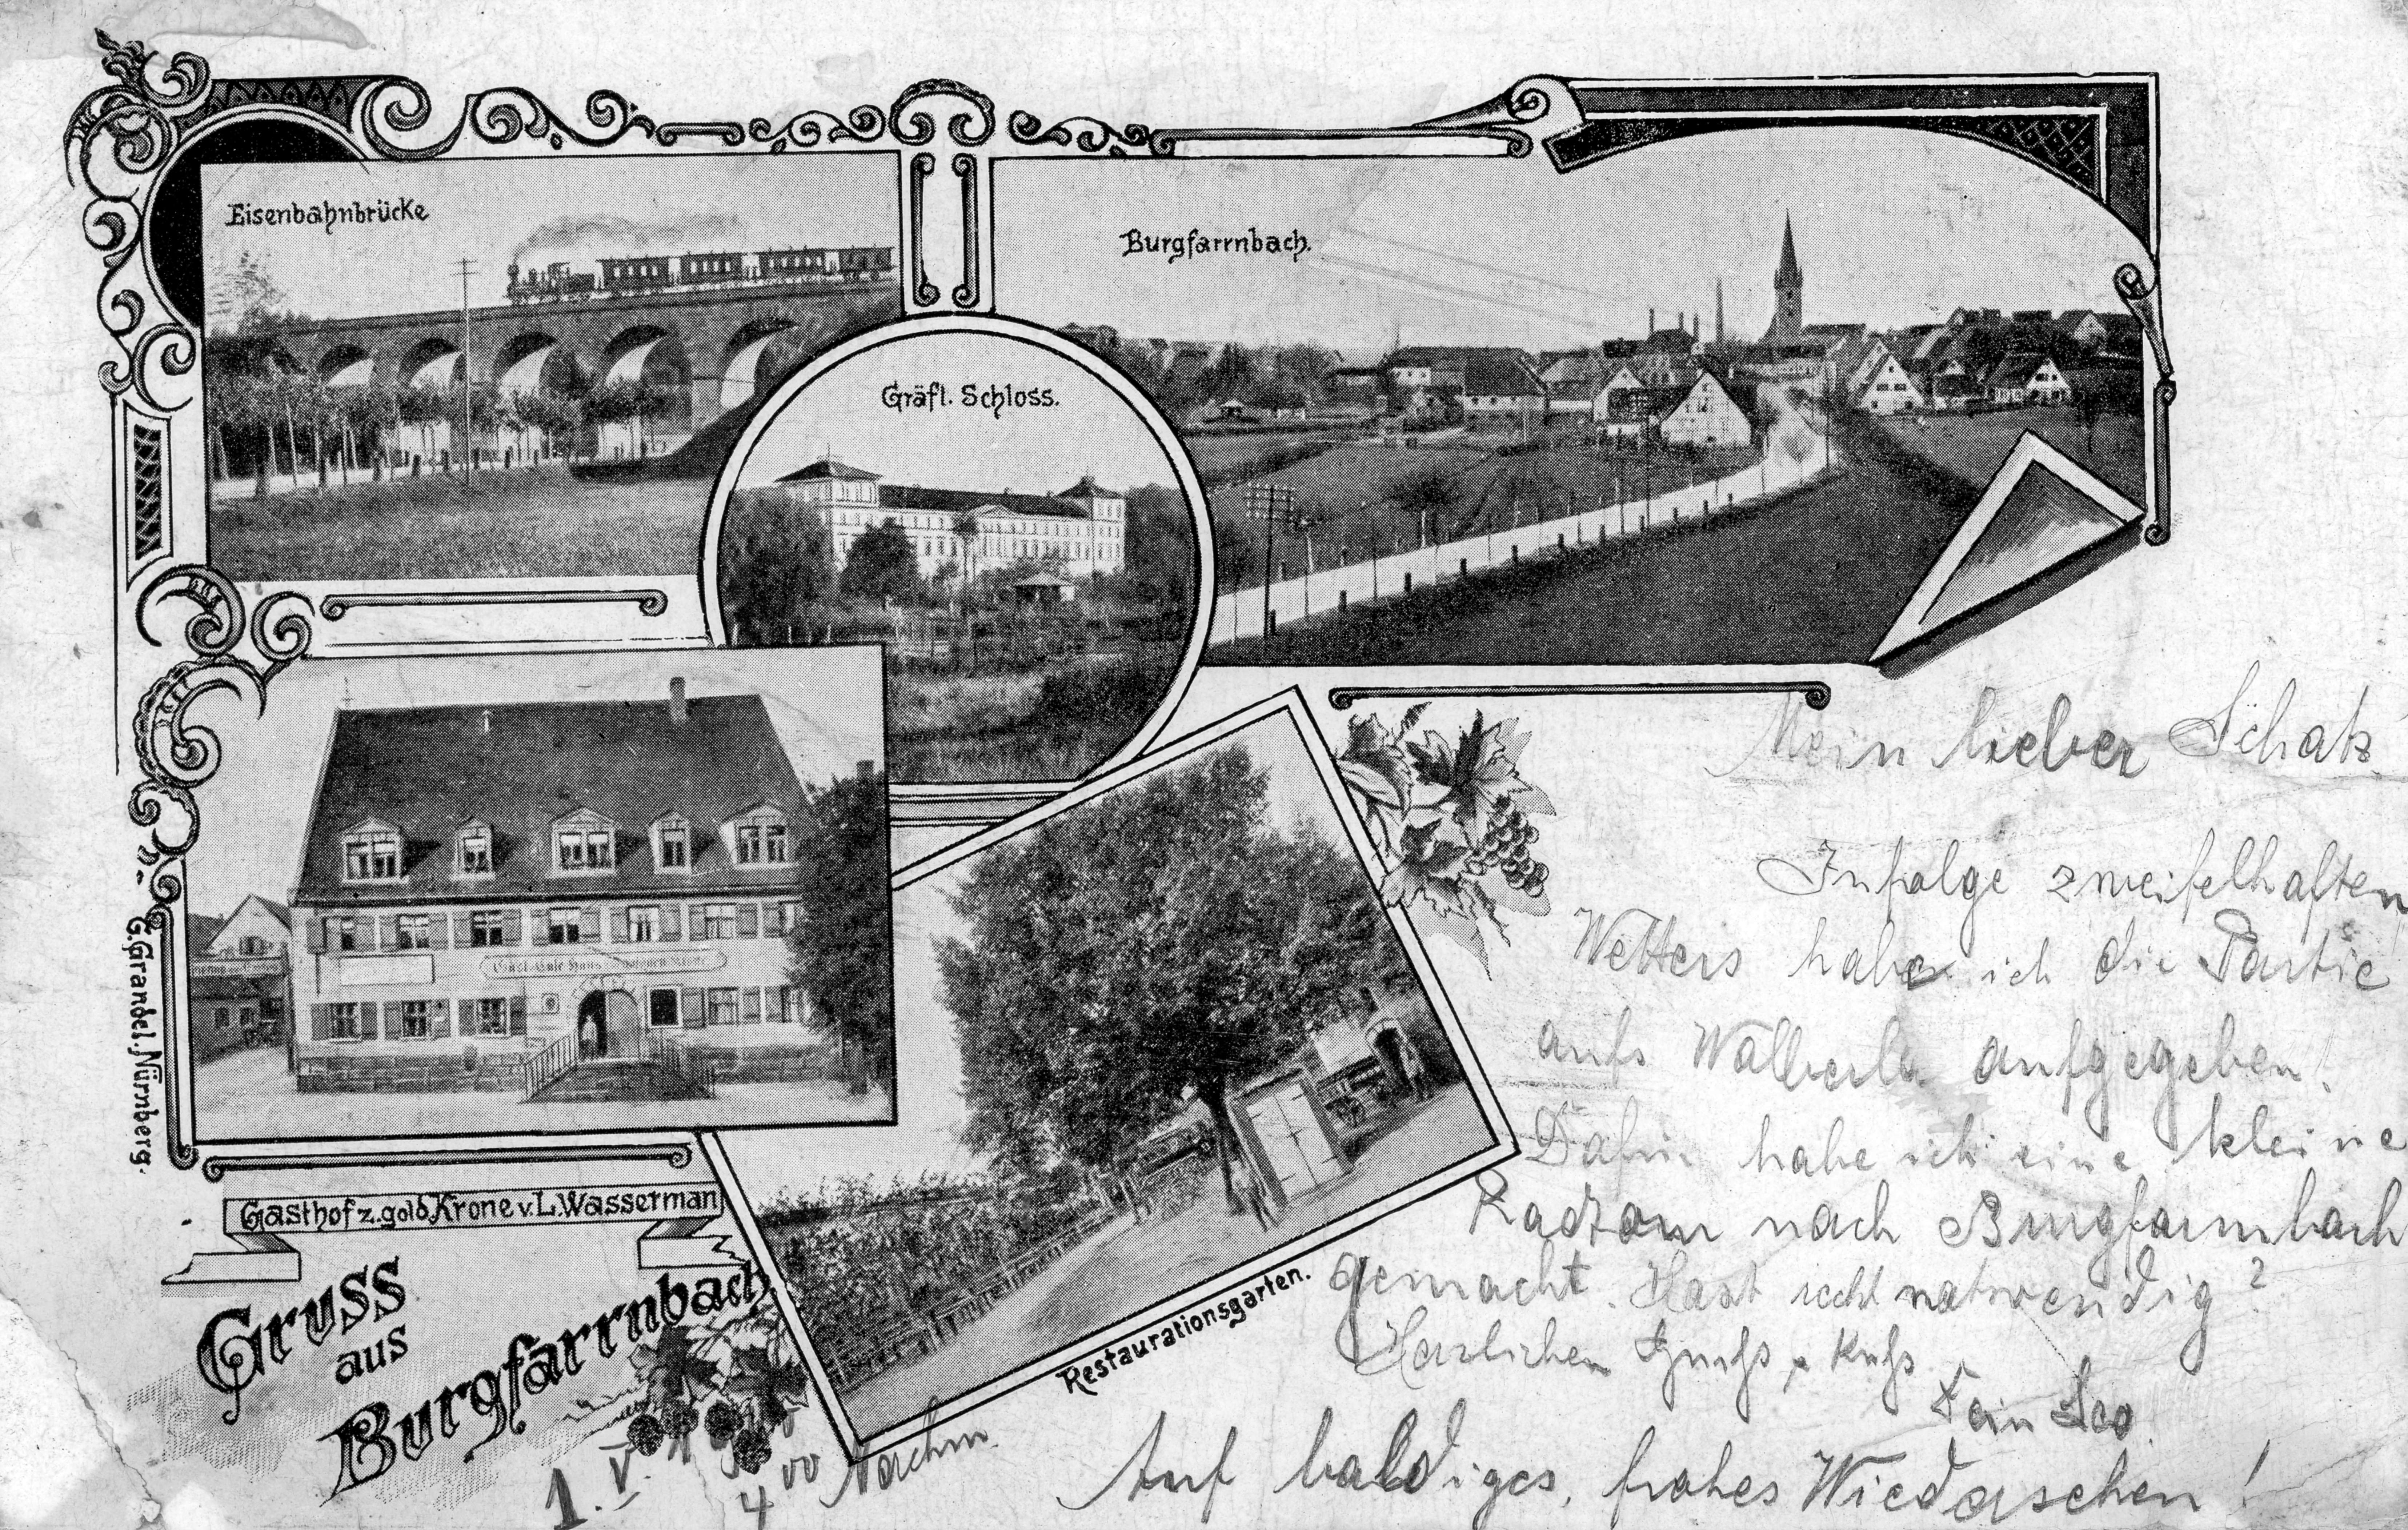 Eisenbahnbrücke
Burgfarrnbach.
Gräfl. Schloss.
G. Grandel. Nürnberg.
Gasthof z. gold. Krone v. L. Wasserman
Restaurationsgarten.
Gruss
aus
Burgfarrnbach.
1. V.
4 00 Nachm.
Mein lieber Schatz
Infolge zweifelhaften
Wetters habe ich die Partie
aufs Walberla aufgegeben!
Dafür habe ich eine kleine
Radtour nach Burgfarrnbach
gemacht. Hast recht notwendig?
Herzlichen Gruß & Kuß
Dein Leo
Auf baldiges, frohes Wiedersehen!